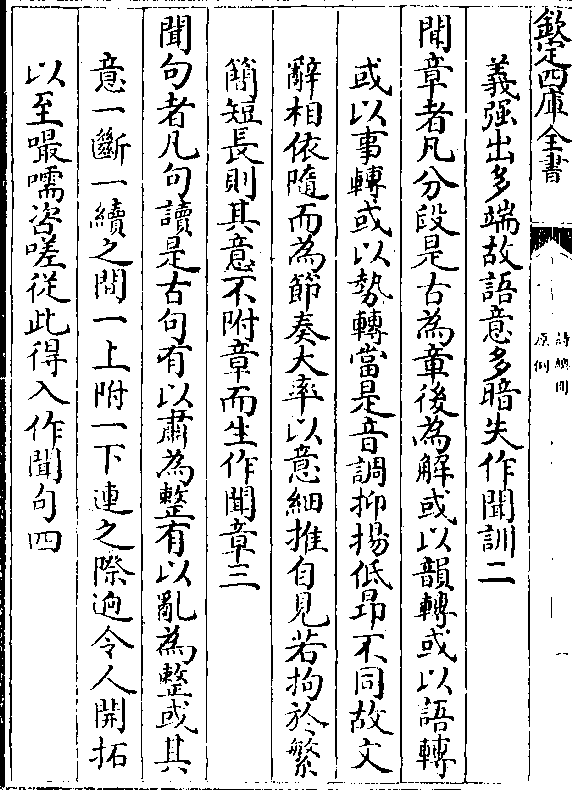 欽定四庫全書
詩總聞
原例
義强出多端故語意多暗失作聞訓二
聞章者凡分段是古為章後為解或以韻轉或以語轉
或以事轉或以勢轉當是音調抑揚低昂不同故文
辭相依隨而為節奏大率以意細推自見若拘於繁
簡短長則其意不附章而生作聞章三
聞句者凡句讀是古句有以肅為整有以亂為整或其
意一斷一續之間一上附一下連之際逈令人開拓
以至嘬嚅咨嗟從此得入作聞句四